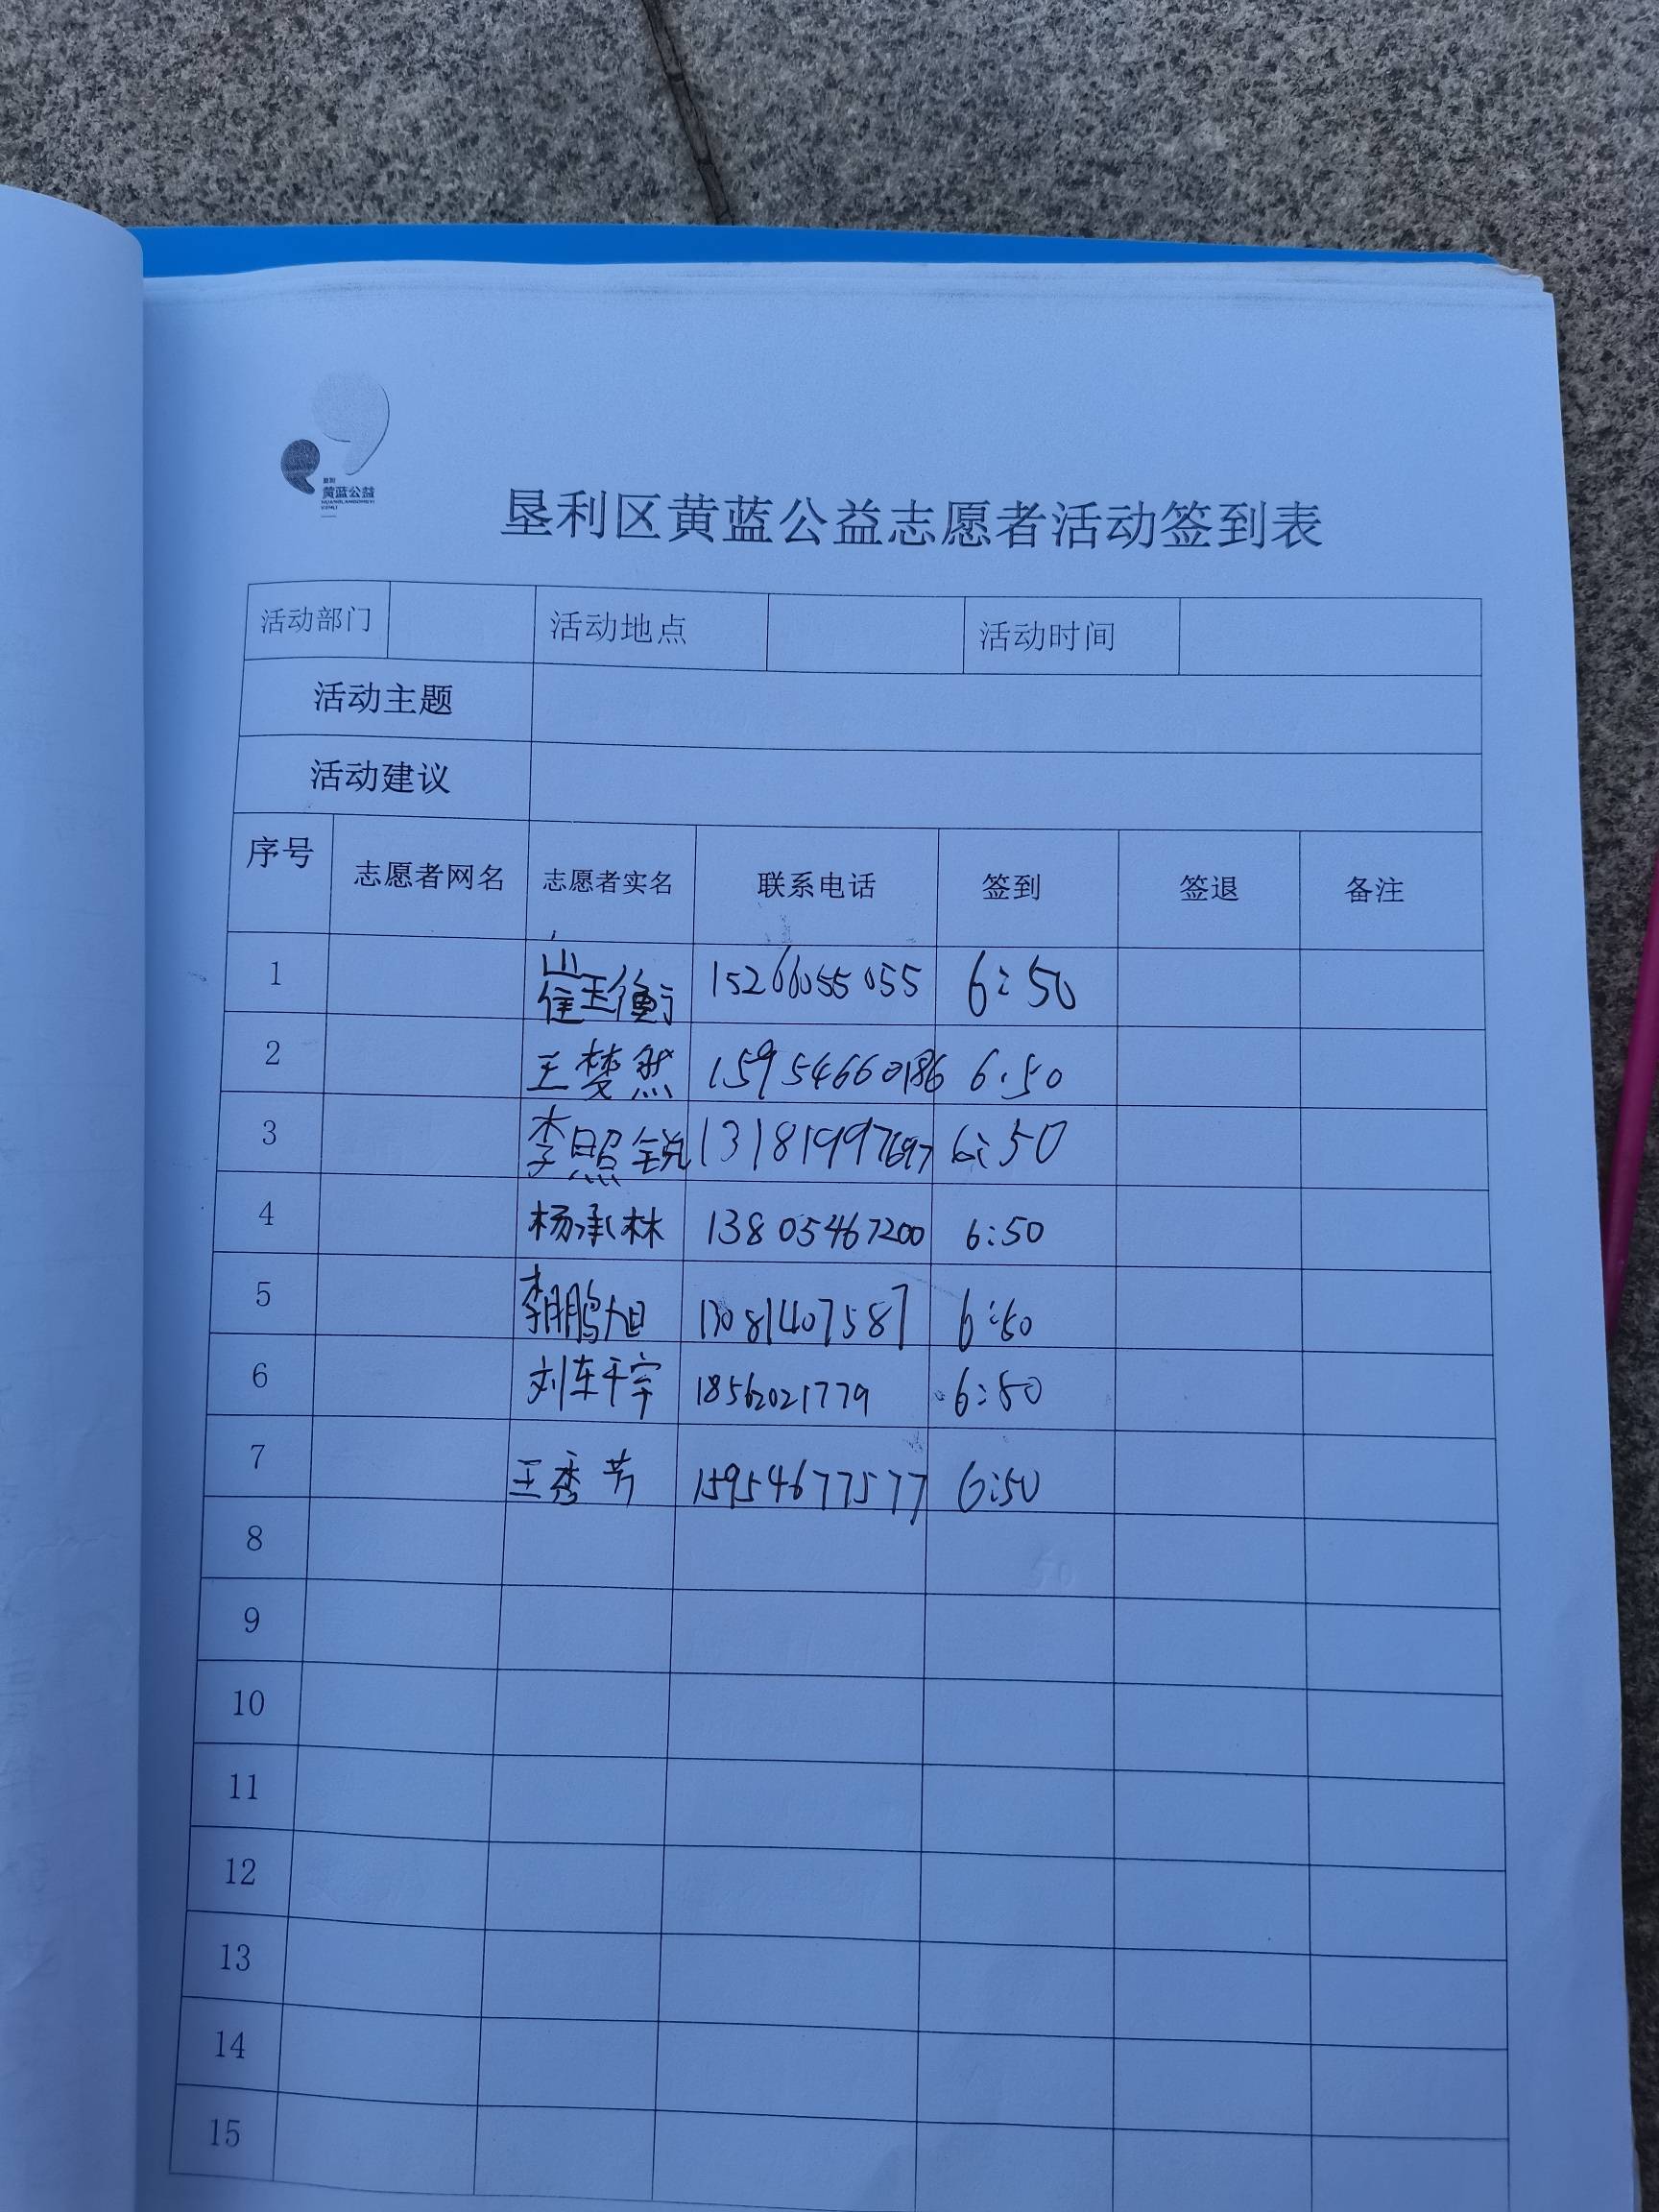 垦利
黄蓝公益
垦利区黄蓝公益志愿者活动签到表
活动部门 活动地点 活动时间
活动主题
活动建议
序号 志愿者网名 志愿者实名 联系电话 签到 签退 备注
1 崔玉衡 15266055055 6:50
2 王梦然 15954660186 6:50
3 李照锐 13181997697 6:50
4 杨承林 13805467200 6:50
5 李鹏旭 13081407587 6:50
6 刘车千宇 18562021779 6:50
7 王秀芳 15954677577 6:50
8
9
10
11
12
13
14
15